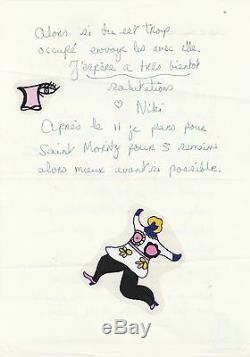 Alors si tu est trop
occupé envoye les avec elle.
J'espère a tres bientot
salutations
♡ Niki
Après le 11 je pars pour
Saint Moritz pour 3 semaines
alors mieux avant si possible.